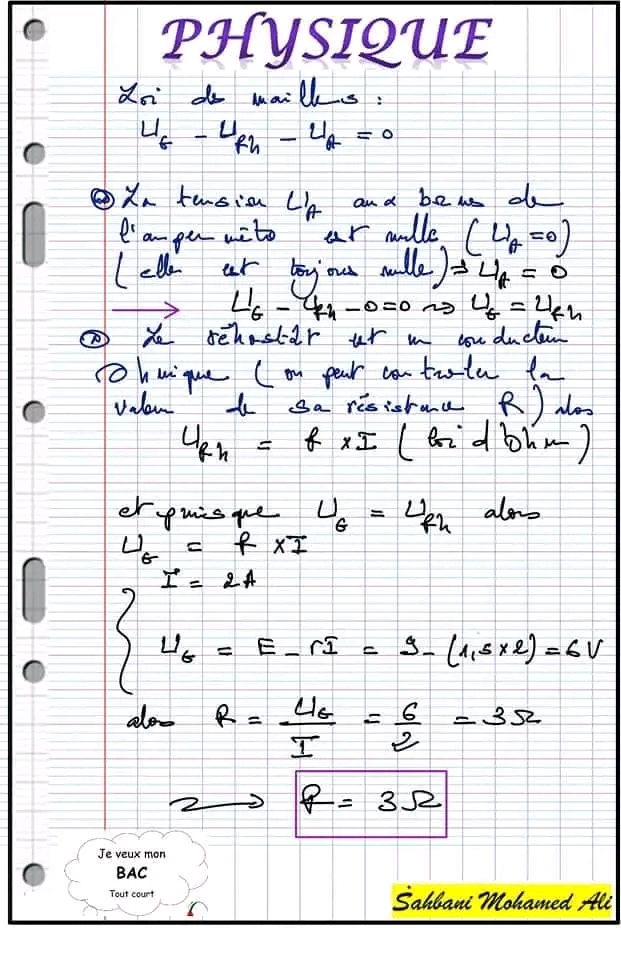 PHYSIQUE
Loi des mailles :
U_G - U_Rh - U_A = 0
La tension U_A aux bornes de
l'ampermètre est nulle (U_A = 0)
(elle est toujours nulle) ⇒ U_A = 0
→ U_G - U_Rh - 0 = 0 ⇝ U_G = U_Rh
Le réhostat est un conducteur
Ohmique (on peut controler la
valeur de sa résistance R) alors
U_Rh = R × I (loi d'ohm)
et puisque U_G = U_Rh alors
U_G = R × I
I = 2A
U_G = E - rI = 9 - (1,5 × 2) = 6V
alors R = U_G / I = 6 / 2 = 3Ω
→ R = 3Ω
Je veux mon
BAC
Tout court
Sahbani Mohamed Ali